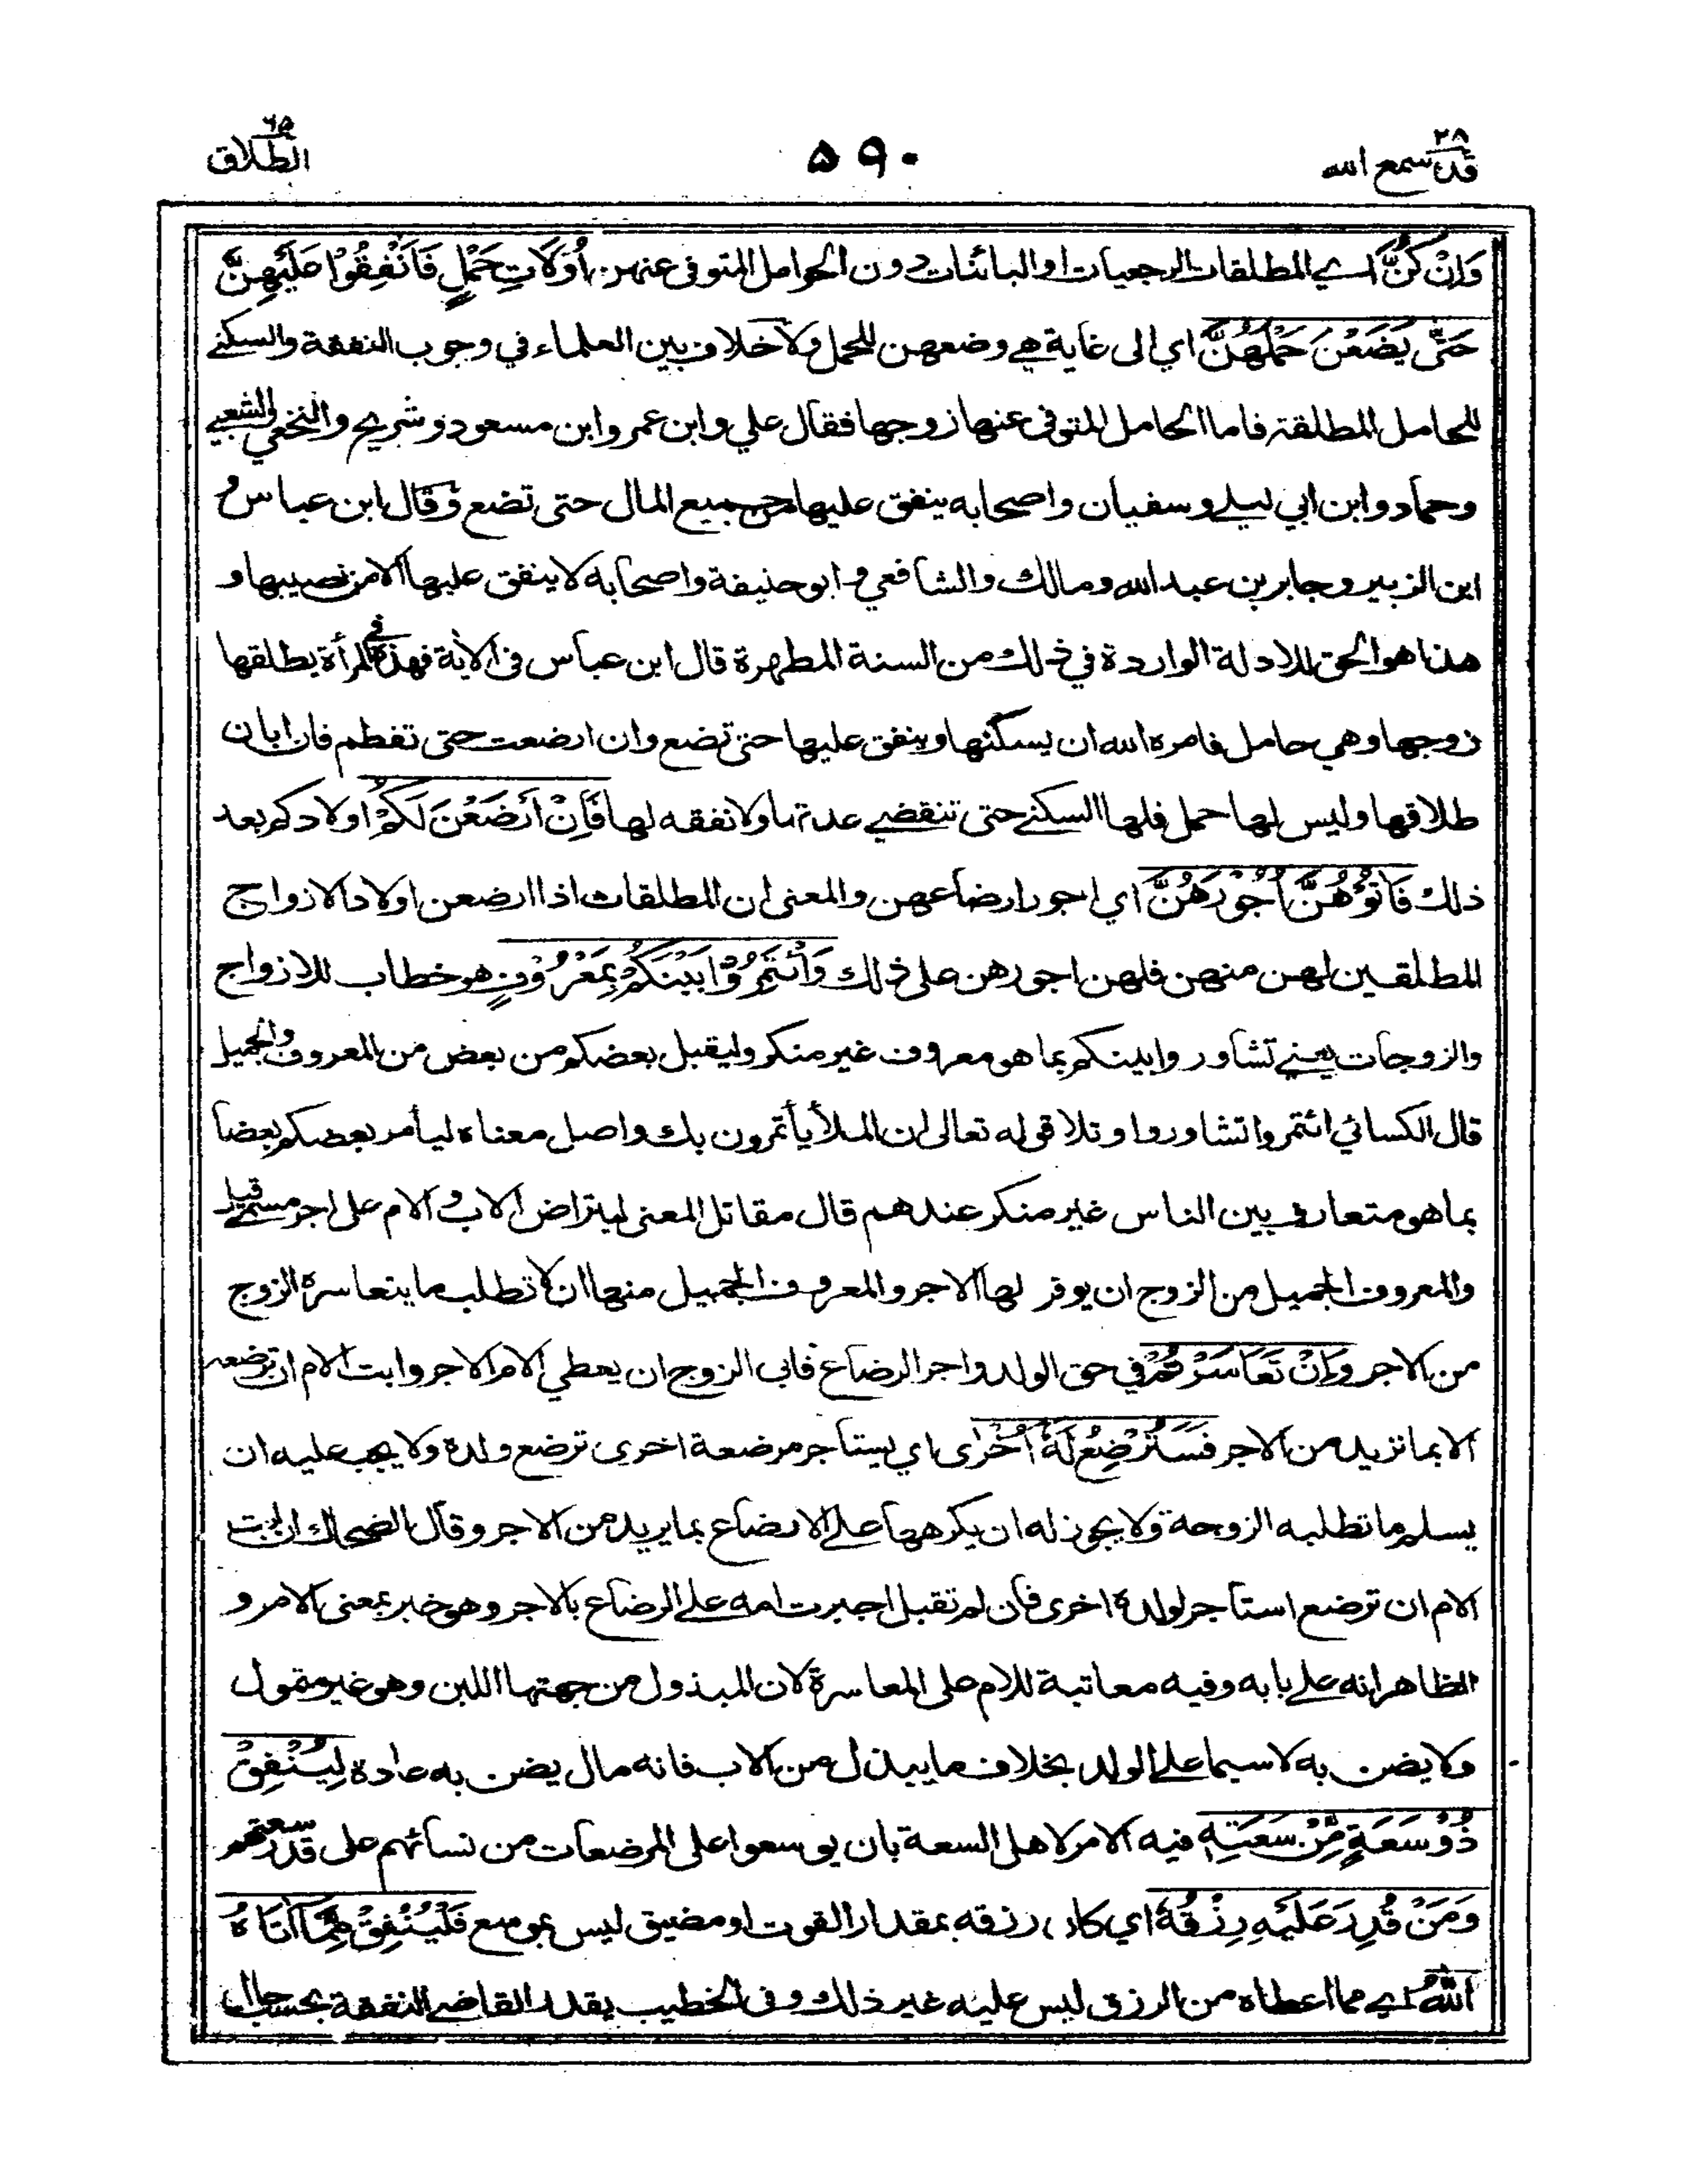 ٢٨
قد سمع الله
٥٩٠
٦٥
الطلاق
وَاِنْ كُنَّ اي المطلقات الرجعيات او البائنات دون الحوامل المتوفى عنهن اُولَاتِ حَمْلٍ فَاَنْفِقُوْا عَلَيْهِنَّ
حَتّٰى يَضَعْنَ حَمْلَهُنَّ اي الى غاية هي وضعهن للحمل ولا خلاف بين العلماء في وجوب النفقة والسكنى
للحامل المطلقة فاما الحامل المتوفى عنها زوجها فقال علي وابن عمر وابن مسعود وشريح والنخعي والشعبي
وحماد وابن ابي ليلى وسفيان واصحابه ينفق عليها من جميع المال حتى تضع وقال ابن عباس و
ابن الزبير وجابر بن عبد الله ومالك والشافعي وابو حنيفة واصحابه لا ينفق عليها الا من نصيبها و
هذا هو الحق للادلة الواردة في ذلك من السنة المطهرة قال ابن عباس في الاية فهذه في المرأة يطلقها
زوجها وهي حامل فامره الله ان يسكنها وينفق عليها حتى تضع وان ارضعت حتى تفطم فان ابان
طلاقها وليس لها حمل فلها السكنى حتى تنقضي عدتها ولا نفقه لها فَاِنْ اَرْضَعْنَ لَكُمْ اولادكم بعد
ذلك فَاٰتُوْهُنَّ اُجُوْرَهُنَّ اي اجور ارضاعهن والمعنى ان المطلقات اذا ارضعن اولاد الازواج
المطلقين لهن منهن فلهن اجورهن على ذلك وَأْتَمِرُوْا بَيْنَكُمْ بِمَعْرُوْفٍ هو خطاب للازواج
والزوجات يعني تشاوروا بينكم بما هو معروف غير منكر وليقبل بعضكم من بعض من المعروف والجميل
قال الكسائي ائتمروا تشاوروا وتلا قوله تعالى ان الملأ يأتمرون بك واصل معناه ليأمر بعضكم بعضا
بما هو متعارف بين الناس غير منكر عندهم قال مقاتل المعنى ليتراض الاب والام على اجر مسمى قيل
والمعروف الجميل من الزوج ان يوفر لها الاجر والمعروف الجميل منها ان لا تطلب ما يتعاسره الزوج
من الاجر وَاِنْ تَعَاسَرْتُمْ في حق الولد واجر الرضاع فابى الزوج ان يعطي الام الاجر وابت الام ان ترضعه
الا بما تريد من الاجر فَسَتُرْضِعُ لَهٗ اُخْرٰى اي يستاجر مرضعة اخرى ترضع ولده ولا يجب عليه ان
يسلم ما تطلبه الزوجة ولا يجوز له ان يكرهها على الارضاع بما يريد من الاجر وقال الضحاك ان ابت
الام ان ترضع استاجر لولده اخرى فان لم تقبل اجبرت امه على الرضاع بالاجر وهو خبر بمعنى الامر و
الظاهر انه على بابه وفيه معاتبة للام على المعاسرة لان المبذول من جهتها اللبن وهو غير متمول
ولا يضن به لا سيما على الولد بخلاف ما يبذل من الاب فانه مال يضن به عادة لِيُنْفِقْ
ذُوْ سَعَةٍ مِّنْ سَعَتِهٖ فيه الامر لاهل السعة بان يوسعوا على المرضعات من نسائهم على قدر سعتهم
وَمَنْ قُدِرَ عَلَيْهِ رِزْقُهٗ اي كان رزقه بمقدار القوت او مضيق ليس بموسع فَلْيُنْفِقْ مِمَّا اٰتَاهُ
اللهُ اي مما اعطاه من الرزق ليس عليه غير ذلك وفي الخطيب يقدر القاضي النفقة بحسب حال